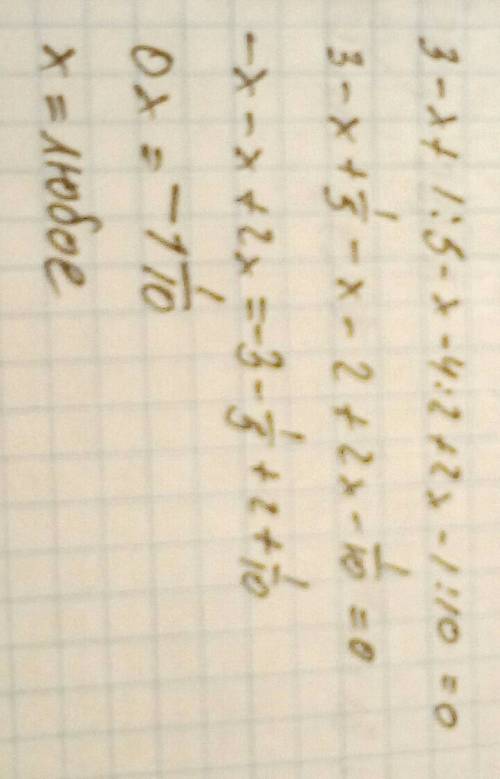 3 - x + 1:5 - x - 4:2 + 2x - 1:10 = 0
3 - x + 1/5 - x - 2 + 2x - 1/10 = 0
-x - x + 2x = -3 - 1/5 + 2 + 1/10
0x = -1 1/10
x = любое